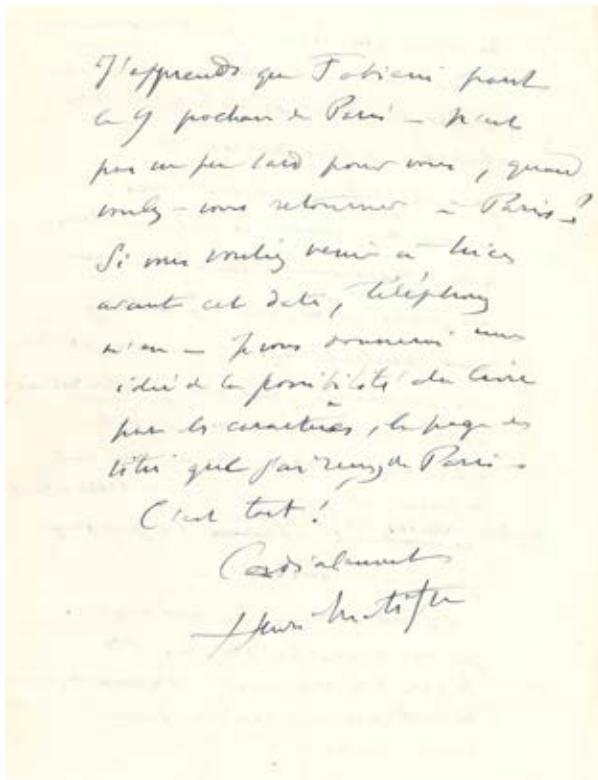 J'apprends que Fabiani part
le 9 prochain de Paris – n'est
pas un peu tard pour vous, quand
voulez-vous retourner à Paris–?
Si vous vouliez venir à Nice
avant cet date, téléphonez
m'en – Je vous donnerai une
idée de la possibilité du livre
par les caractères, la page des
titres que j'ai reçu de Paris –
C'est tout!
Cordialement
Henri Matisse